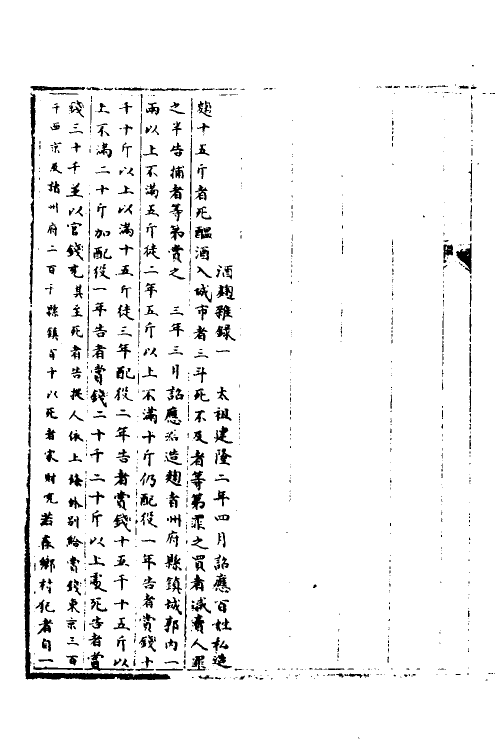 酒麴雜錄一　太祖建隆二年四月詔應百姓私造
麴十五斤者死醖酒入城市者三斗死不及者等第罪之買者減賣人罪
之半告捕者等第賞之　三年三月詔應㳂造麴者州府縣鎮城郭内一
兩以上不滿五斤徒二年五斤以上不滿十斤仍配役一年告者賞錢十
千十斤以上以滿十五斤徒三年配役二年告者賞錢十五千十五斤以
上不滿二十斤加配役一年告者賞錢二十千二十斤以上處死告者賞
錢三十千並以官錢充其至死者告捉人依上條外別給賞錢東京三百
千西京及諸州府二百千縣鎮百千以死者家財充若在鄉村犯者自一